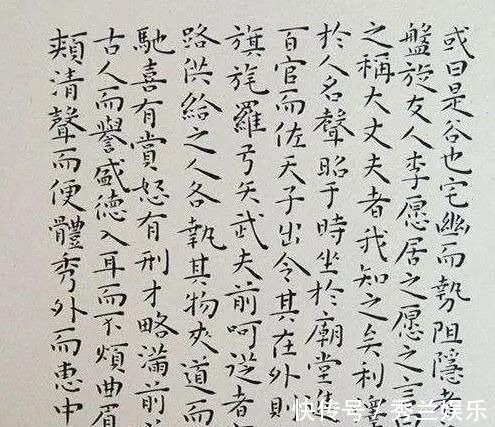 或曰是谷也宅幽而勢阻隱者
盤旋友人李愿居之愿之言曰
之稱大丈夫者我知之矣利澤
於人名聲昭于時坐於廟堂進
百官而佐天子出令其在外則
旗旄羅弓矢武夫前呵從者
路供給之人各執其物夾道而
馳喜有賞怒有刑才略滿前
古人而譽盛德入耳而不煩曲眉
頰清聲而便體秀外而惠中
快传号/秀兰娱乐